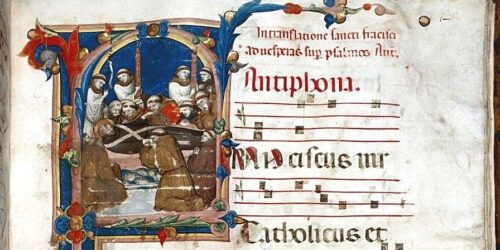 In translatione sancti fracisci
ad uesperas sup psalmos. Ant.
Antiphona.
RANciscus uir
Catholicus et